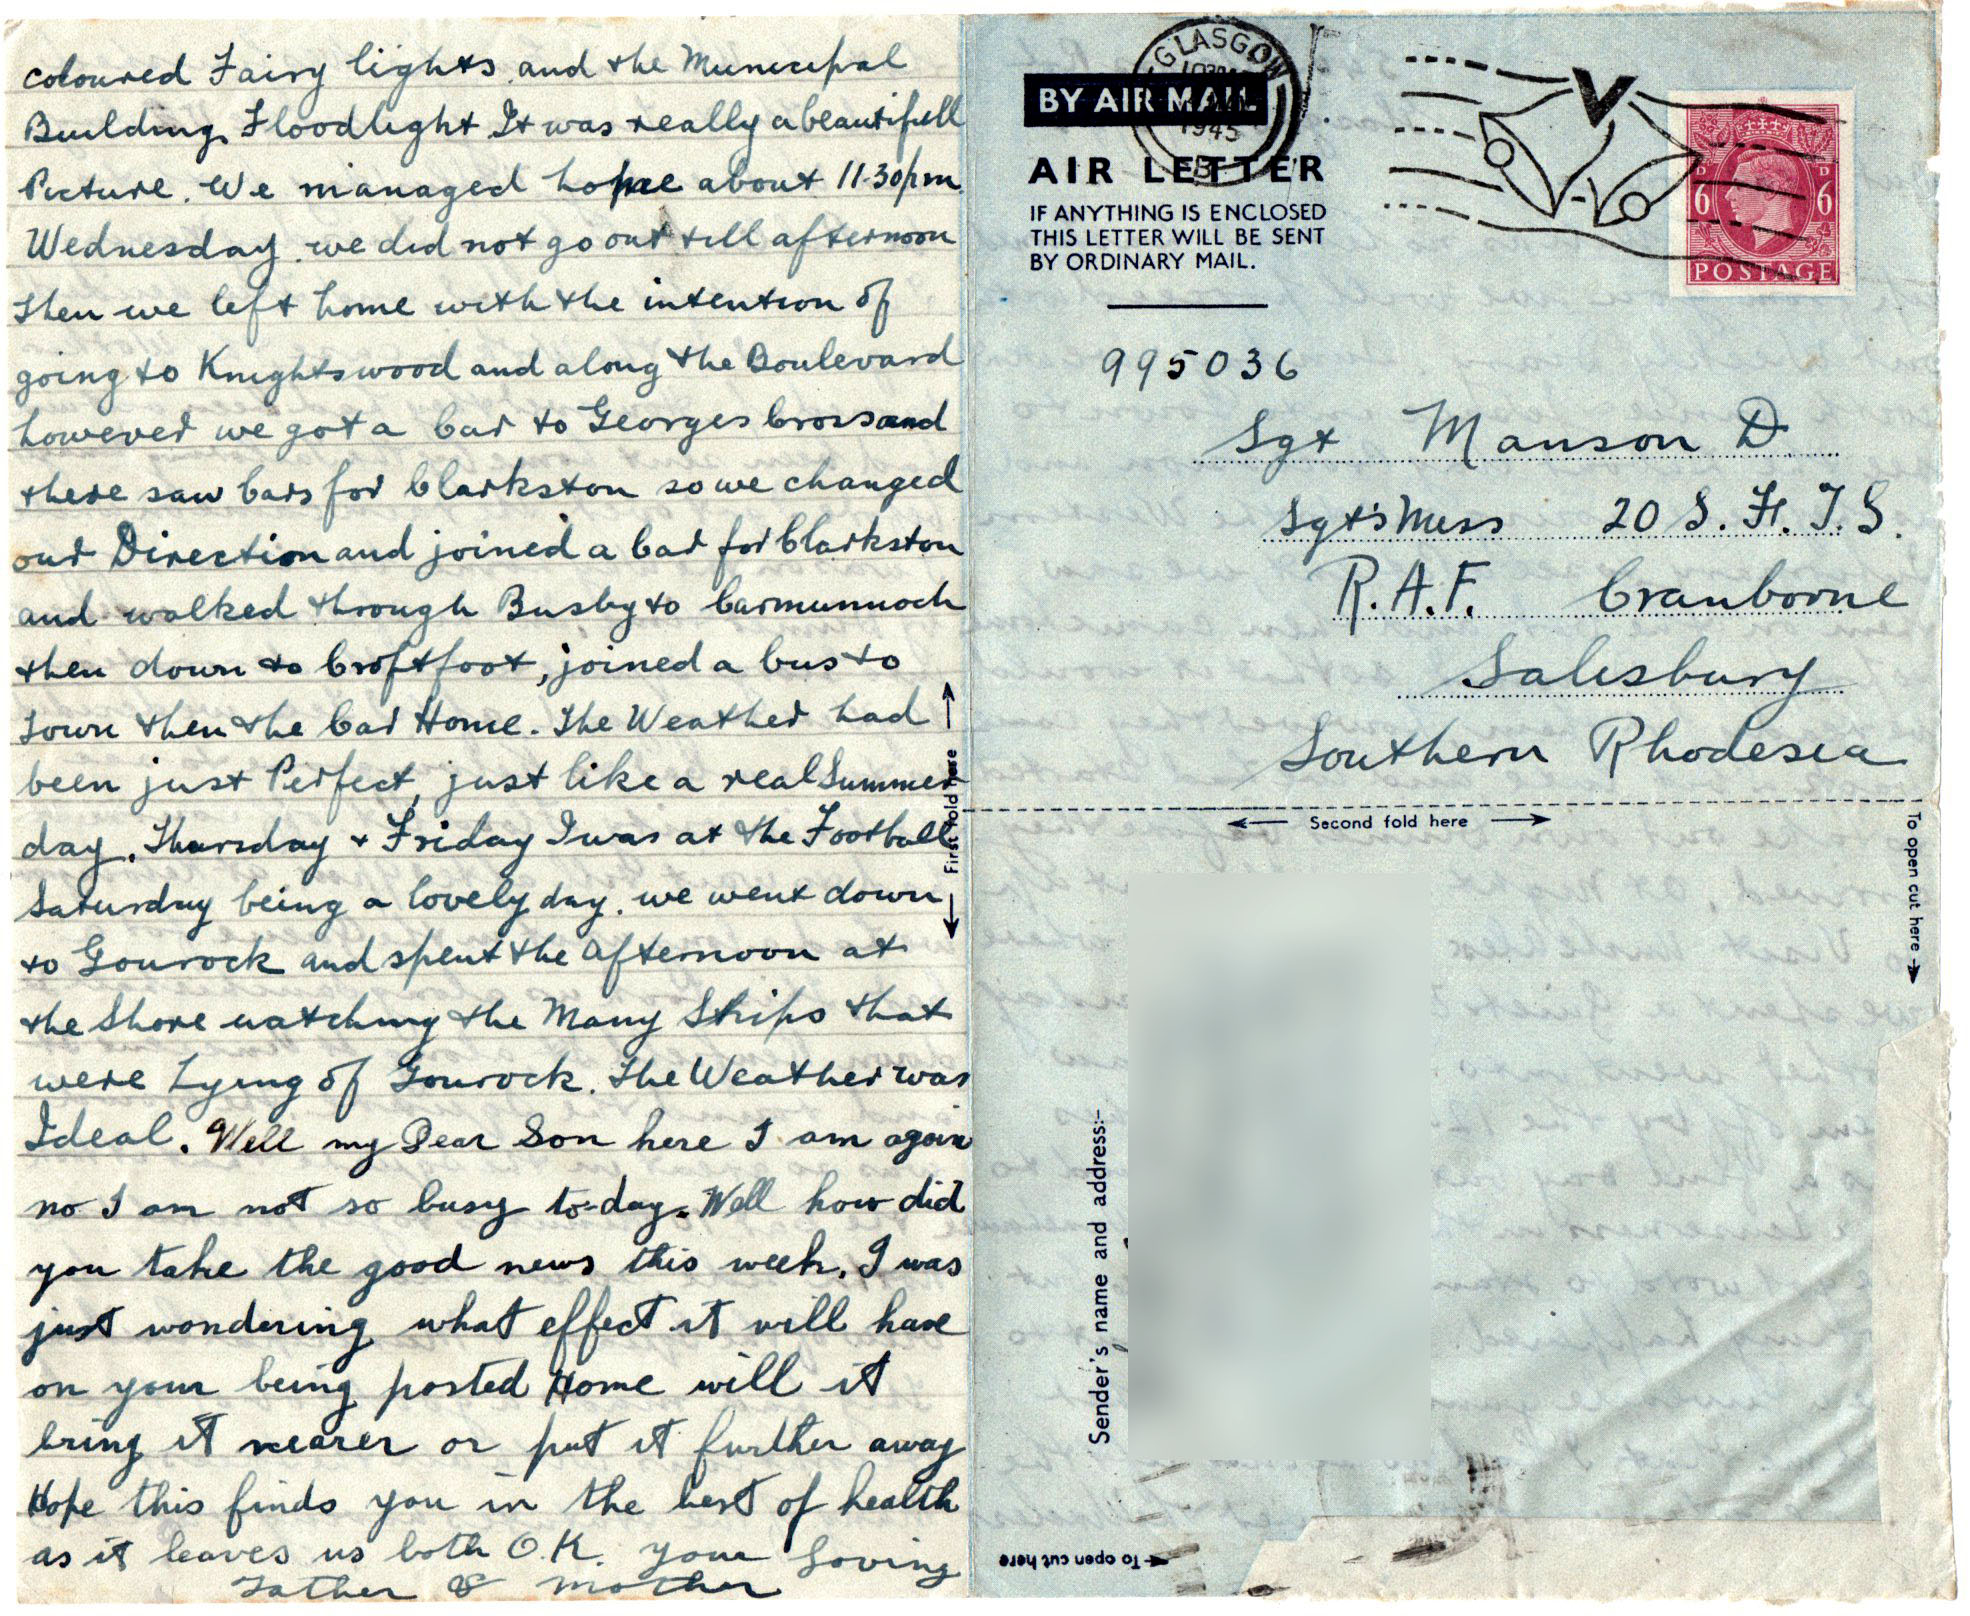 coloured Fairy lights and the Municipal
Building Floodlight It was really a beautifull
Picture. We managed home about 11-30pm
Wednesday. we did not go out till afternoon
Then we left home with the intention of
going to Knightswood and along the Boulevard
however we got a Car to Georges Cross and
there saw Cars for Clarkston so we changed
our Direction and joined a Car for Clarkston
and walked through Busby to Carmunnoch
then down to Croftfoot, joined a bus to
Town then the Car Home. The Weather had
been just Perfect, just like a real Summer
day. Thursday + Friday I was at the Football
Saturday being a lovely day. we went down
to Gourock and spent the afternoon at
the Shore watching the Many Ships that
were Lying of Gourock. The Weather was
Ideal. Well my Dear Son here I am again
no I am not so busy to-day. Well how did
you take the good news this week. I was
just wondering what effect it will have
on your being posted Home will it
bring it nearer or put it further away
Hope this finds you in the best of health
as it leaves us both O.K. your Loving
Father & Mother
First fold here
GLASGOW
1945
B
BY AIR MAIL
AIR LETTER
IF ANYTHING IS ENCLOSED
THIS LETTER WILL BE SENT
BY ORDINARY MAIL.
V
D D
6 6
POSTAGE
995036
Sgt Manson D
Sgt's Mess 20 S. F. T. S.
R.A.F. Cranborne
Salisbury
Southern Rhodesia
Second fold here
To open cut here
Sender's name and address:-
To open cut here